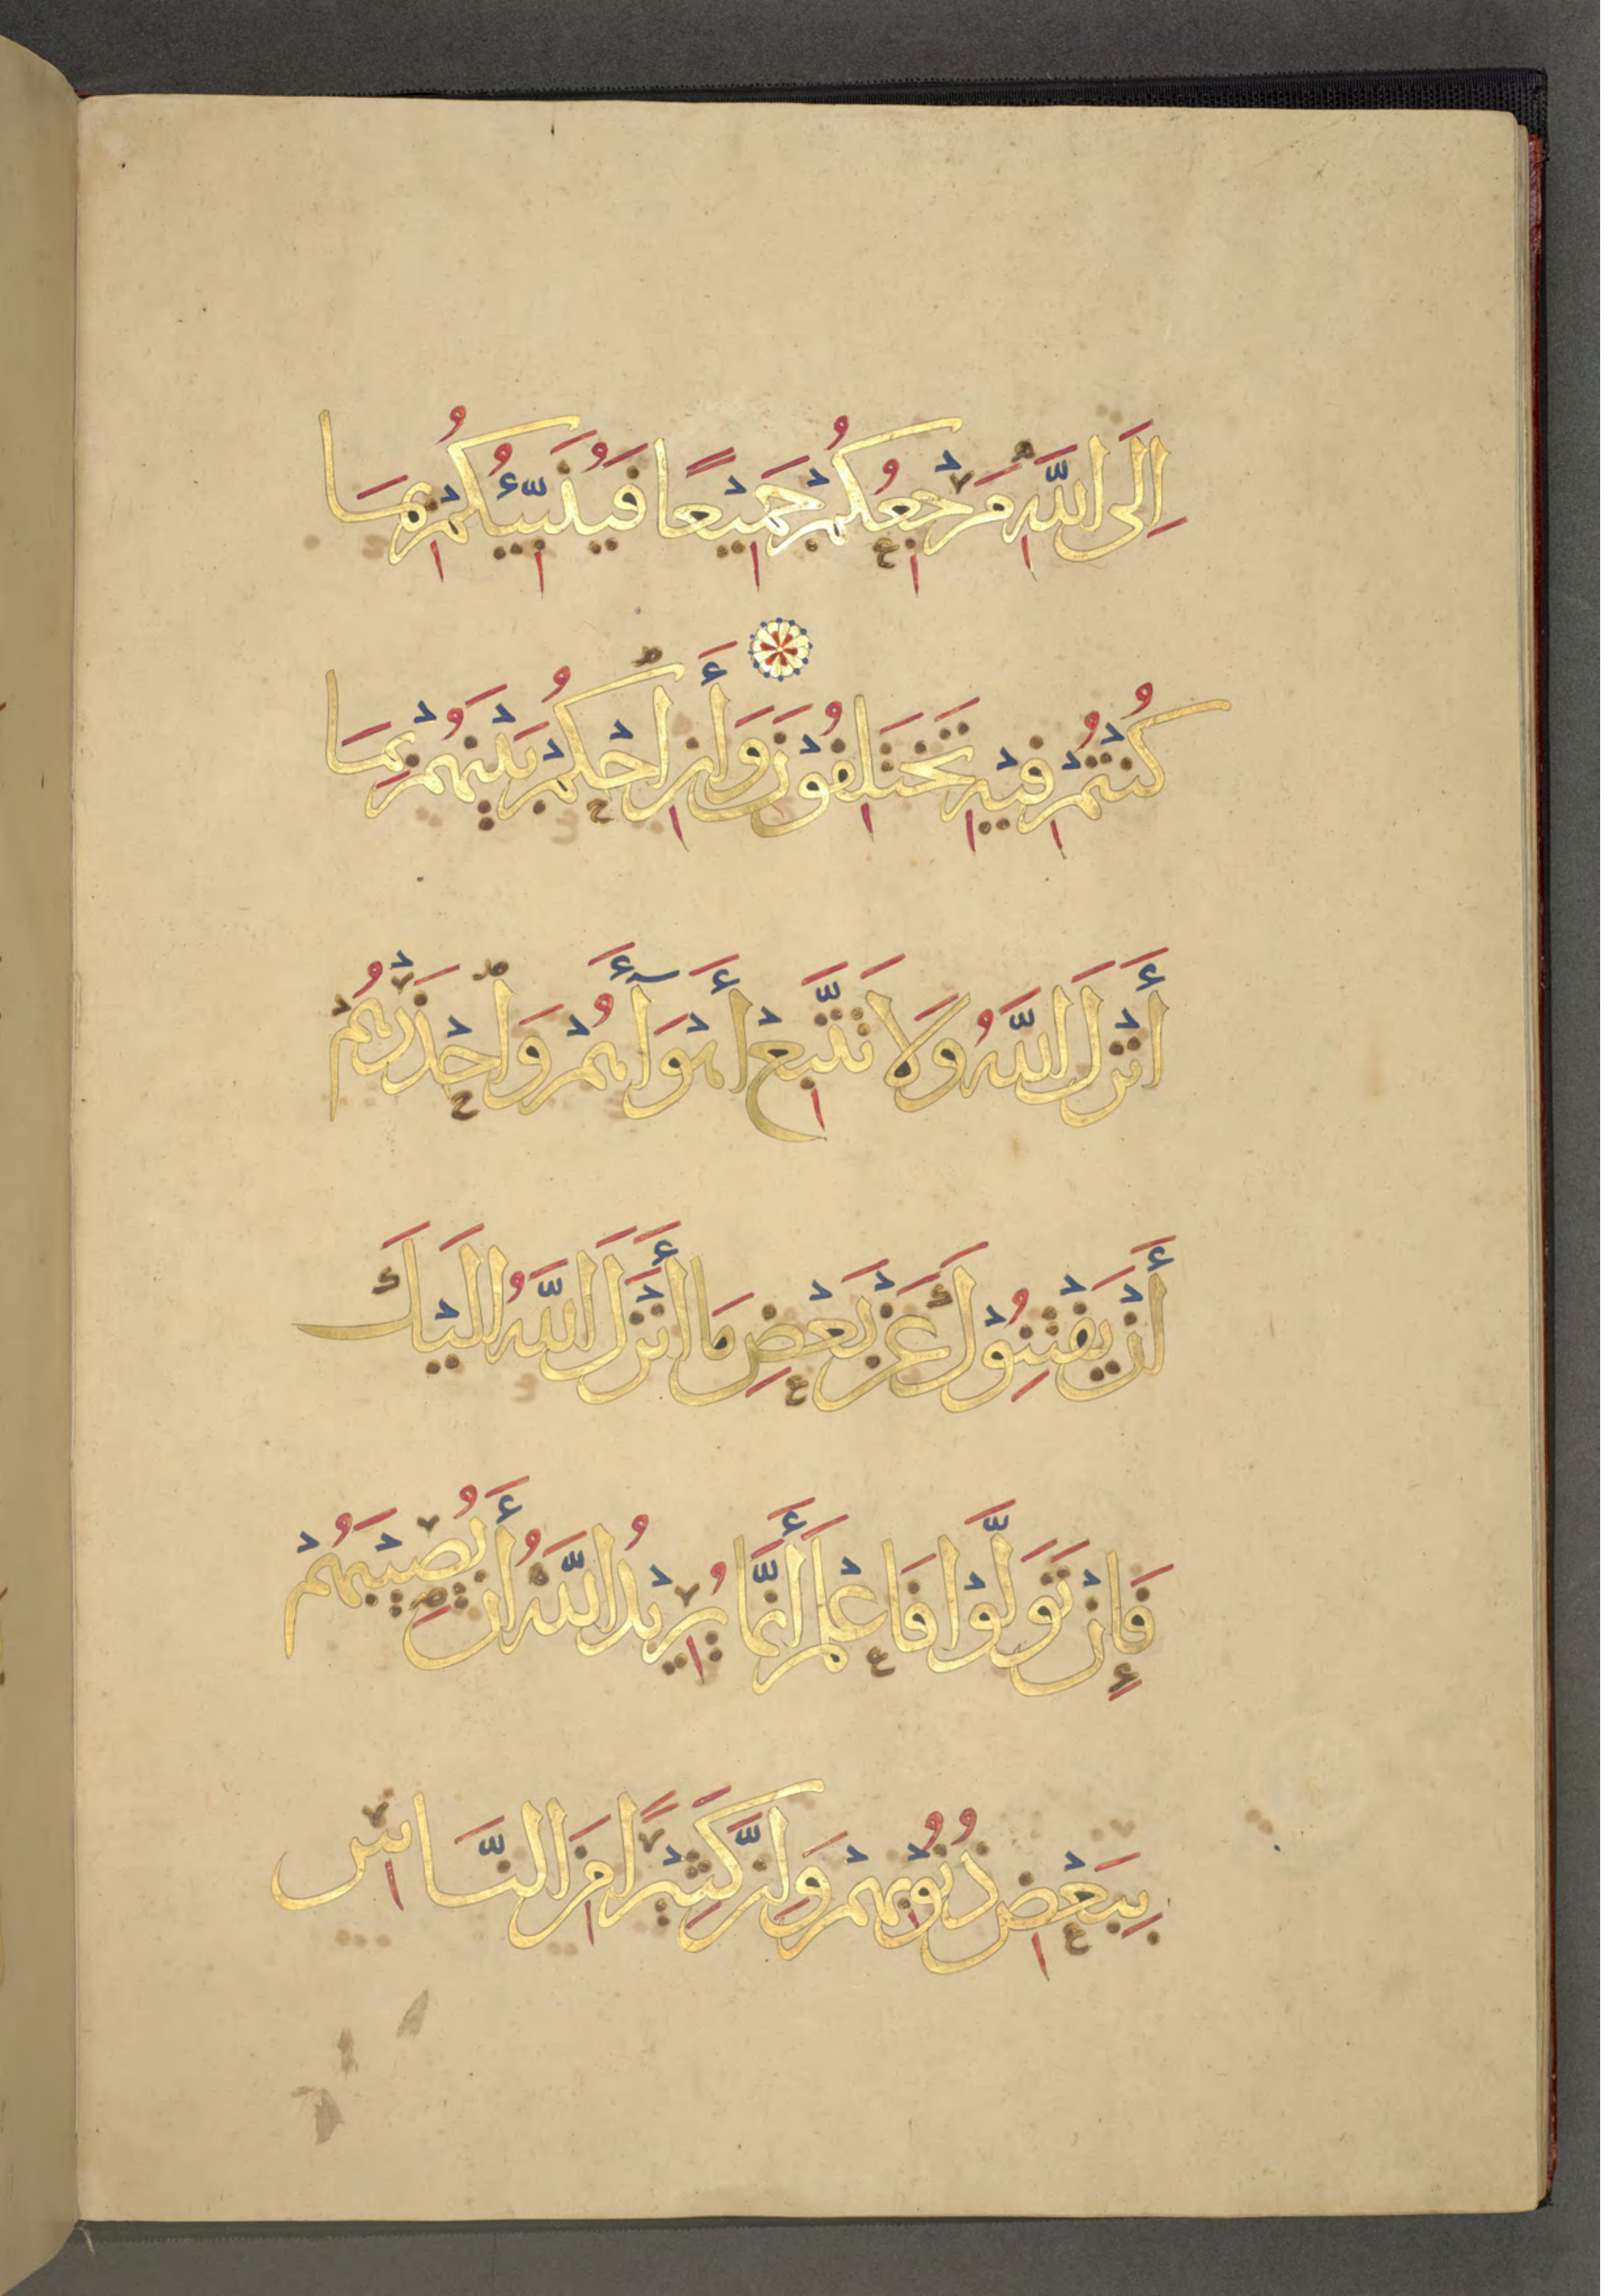 إِلَى اللَّهِ مَرْجِعُكُمْ جَمِيْعًا فَيُنَبِّئُكُمْ بِمَا
كُنْتُمْ فِيْهِ تَخْتَلِفُوْنَ وَأَنِ احْكُمْ بَيْنَهُمْ بِمَا
أَنْزَلَ اللَّهُ وَلَا تَتَّبِعْ أَهْوَآءَهُمْ وَاحْذَرْهُمْ
أَنْ يَفْتِنُوْكَ عَنْ بَعْضِ مَا أَنْزَلَ اللَّهُ إِلَيْكَ
فَإِنْ تَوَلَّوْا فَاعْلَمْ أَنَّمَا يُرِيْدُ اللَّهُ أَنْ يُصِيْبَهُمْ
بِبَعْضِ ذُنُوْبِهِمْ وَإِنَّ كَثِيْرًا مِنَ النَّاسِ